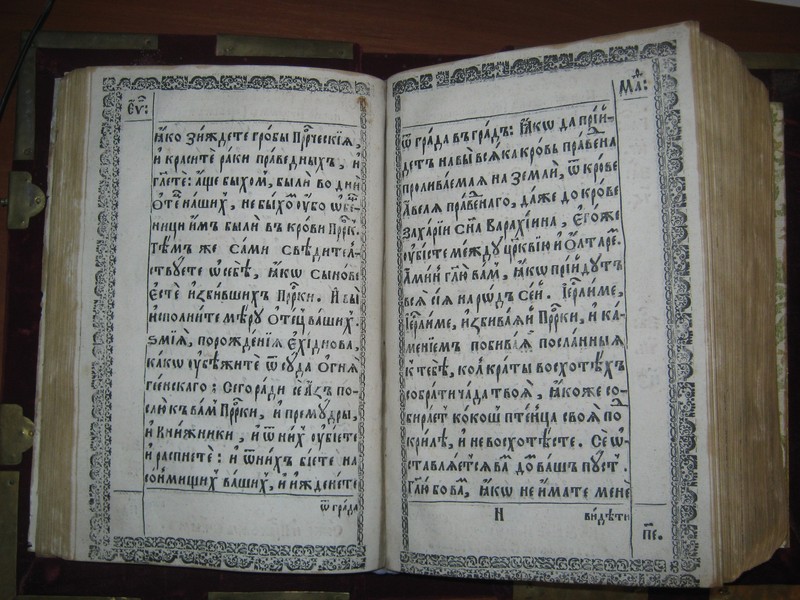 Єѵ҃:
ꙗ҆́кѡ зи́ждете гро́бы прⷪ҇рческїѧ,
и҆ кра́сите ра́ки пра́ведныхъ, и҆
глⷢ҇ете: а҆́ще бы́хомъ, бы́ли во дни̑
ѻ҆тє́цъ на́шихъ, не бы́хомъ ᲂу҆́бѡ ѡ҆б̾е́-
щницы и҆̀мъ бы́ли въ кро́ви прⷪ҇ркъ.
Тѣ́мъ же са́ми свѣдител-
ствуете ѡ҆ себѣ̀, ꙗ҆́кѡ сы́нове
є҆стѐ и҆зби́вшихъ прⷪ҇рки. И҆ вы̀
и҆спо́лните мѣ́ру ѻ҆те́цъ ва́шихъ.
ѕмїѧ̑, порождє́нїѧ є҆хі́днова,
ка́кѡ ᲂу҆бѣжитѐ ѿ сꙋда̀ ѻ҆гнѧ̀
гее́нскаго: Сегѡ̀ ра́ди сѐ а҆́зъ по-
слю̀ къ ва́мъ прⷪ҇рки, и҆ премꙋ́дры,
и҆ кни́жники, и҆ ѿ ни́хъ ᲂу҆бїе́те
и҆ ра́спнете: и҆ ѿ ни́хъ бїе́те на
со́нмищихъ ва́шихъ, и҆ и҆ждене́те
ѿ гра́да
Мⷶ҇ѳ:
ѿ гра́да въ гра́дъ: ꙗ҆́кѡ да прїи́-
детъ на вы̀ всѧ́ка кро́вь пра́ведна
пролива́емаѧ на землѝ, ѿ кро́ве
а҆́велѧ пра́веднаго, да́же до кро́ве
заха́рїи сн҃а варахі́ина, є҆го́же
ᲂу҆би́сте междꙋ̀ цр҃ко́вїю и҆ ѻ҆лтаре́мъ.
А҆ми́нь гл҃ю ва́мъ, ꙗ҆́кѡ прїи́дꙋтъ
всѧ̑ сїѧ̑ на рѡ́дъ се́й. І҆ерⷭ҇ли́ме,
і҆ерⷭ҇ли́ме, и҆збива́ѧй прⷪ҇рки, и҆ ка-
ме́нїемъ побива́ѧ по́сланныѧ
к̾ тебѣ̀, кол̾кра́ты восхотѣ́хъ
собра́ти ча́да твоѧ̑, ꙗ҆́коже со-
бира́етъ ко́кошъ птенца̀ своѧ̑ по-
крилѣ̀, и҆ не восхотѣ́сте. Сѐ ѡ҆-
ставлѧ́ется ва́мъ до́мъ ва́шъ пꙋ́стъ.
Гл҃ю бо ва́мъ, ꙗ҆́кѡ не и҆́мате менѐ
н
ви́дѣти
п҃е.